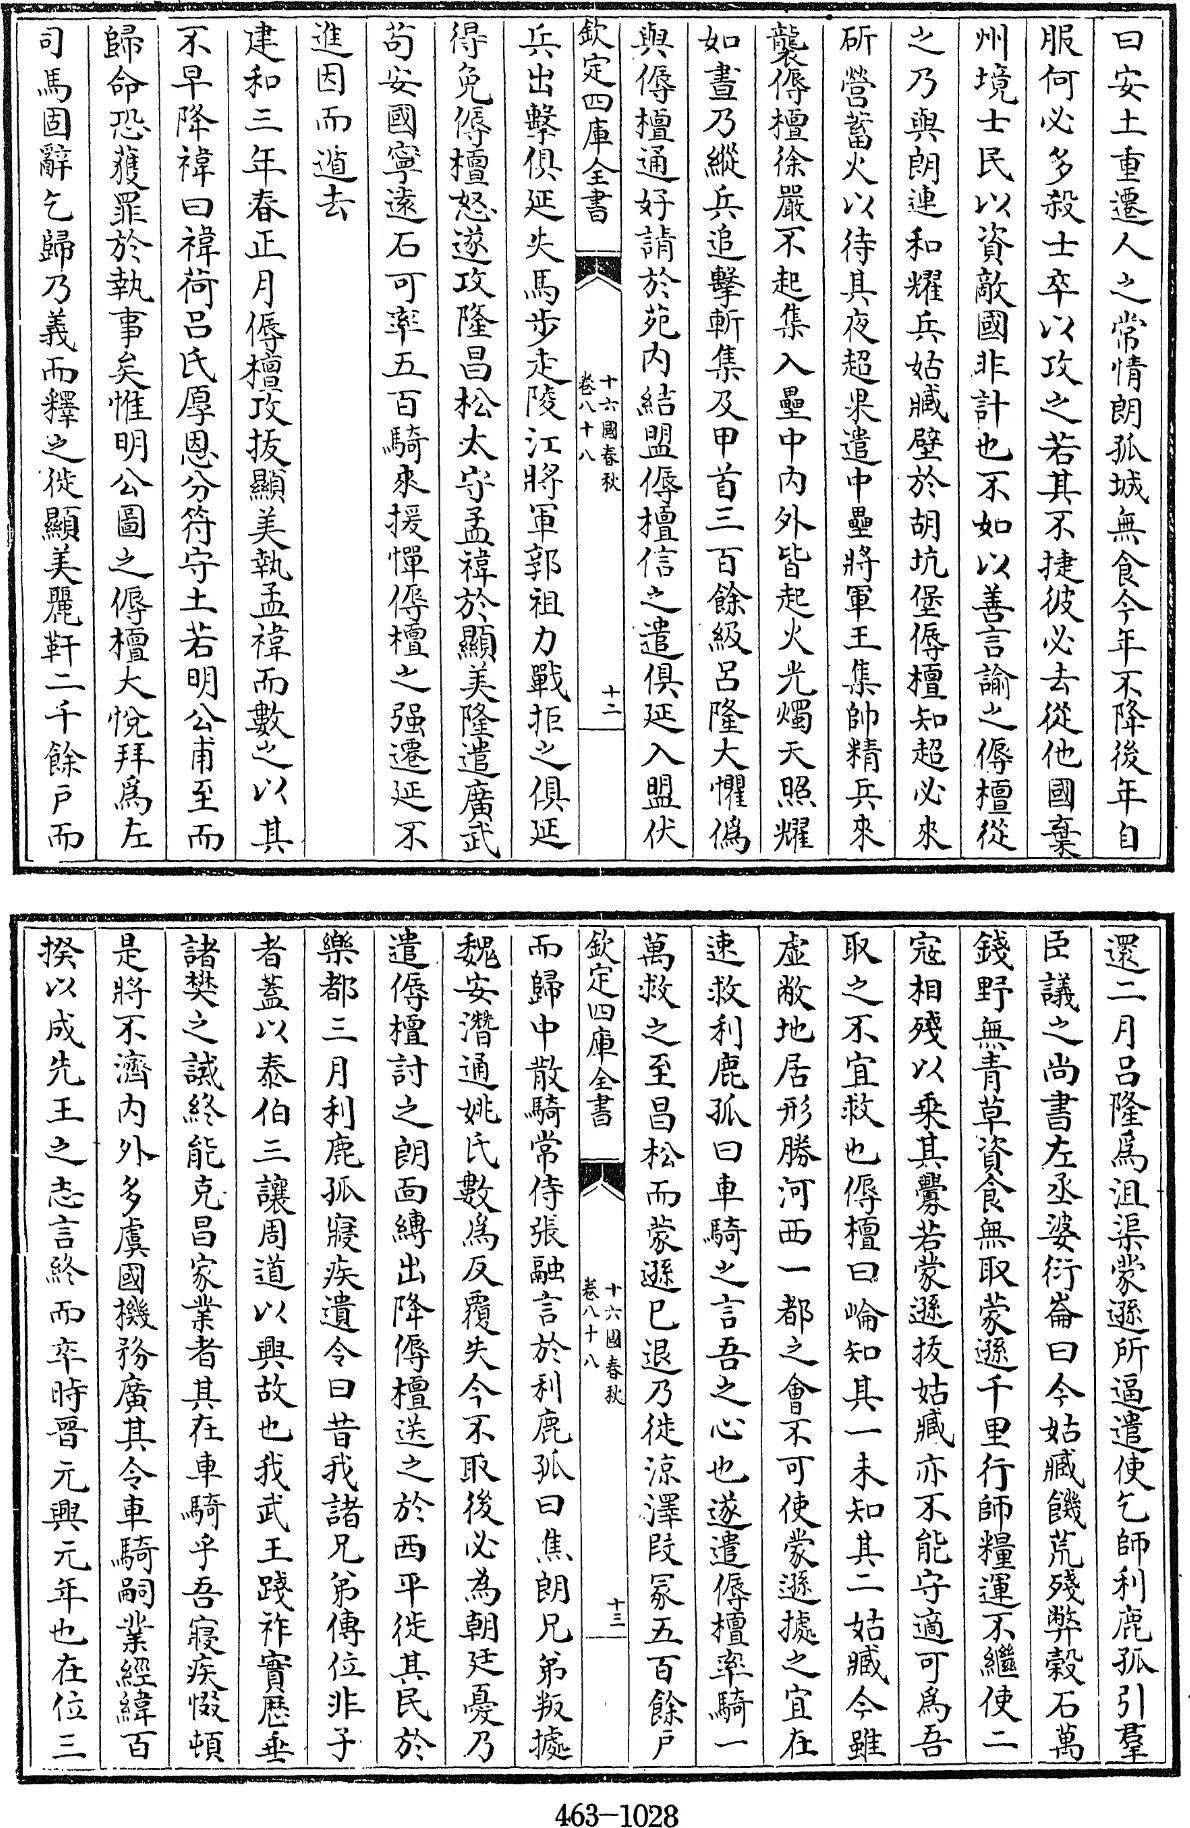 曰安土重遷人之常情朗孤城無食今年不降後年自
服何必多殺士卒以攻之若其不捷彼必去從他國棄
州境士民以資敵國非計也不如以善言諭之傉檀從
之乃與朗連和耀兵姑臧壁於胡坑堡傉檀知超必來
斫營蓄火以待其夜超果遣中壘將軍王集帥精兵來
襲傉檀徐嚴不起集入壘中內外皆起火光燭天照耀
如晝乃縱兵追擊斬集及甲首三百餘級呂隆大懼僞
與傉檀通好請於苑內結盟傉檀信之遣俱延入盟伏
欽定四庫全書
十六國春秋
卷八十八
十二
兵出擊俱延失馬步走陵江將軍郭祖力戰拒之俱延
得免傉檀怒遂攻隆昌松太守孟禕於顯美隆遣廣武
苟安國寧遠石可率五百騎來援憚傉檀之强遷延不
進因而遁去
建和三年春正月傉檀攻拔顯美執孟禕而數之以其
不早降禕曰禕荷呂氏厚恩分符守土若明公甫至而
歸命恐獲罪於執事矣惟明公圖之傉檀大悅拜爲左
司馬固辭乞歸乃義而釋之徙顯美麗靬二千餘戶而
還二月呂隆爲沮渠蒙遜所逼遣使乞師利鹿孤引羣
臣議之尚書左丞婆衍崙曰今姑臧饑荒殘弊穀石萬
錢野無青草資食無取蒙遜千里行師糧運不繼使二
寇相殘以乘其釁若蒙遜拔姑臧亦不能守適可爲吾
取之不宜救也傉檀曰崘知其一未知其二姑臧今雖
虛敝地居形勝河西一都之會不可使蒙遜據之宜在
速救利鹿孤曰車騎之言吾之心也遂遣傉檀率騎一
萬救之至昌松而蒙遜已退乃徙涼澤段冢五百餘戶
欽定四庫全書
十六國春秋
卷八十八
十三
而歸中散騎常侍張融言於利鹿孤曰焦朗兄弟叛據
魏安潛通姚氏數爲反覆失今不取後必為朝廷憂乃
遣傉檀討之朗面縛出降傉檀送之於西平徙其民於
樂都三月利鹿孤寢疾遺令曰昔我諸兄弟傳位非子
者蓋以泰伯三讓周道以興故也我武王踐祚實歷垂
諸樊之誠終能克昌家業者其在車騎乎吾寢疾惙頓
是將不濟內外多虞國機務廣其令車騎嗣業經緯百
揆以成先王之志言終而卒時晉元興元年也在位三
463-1028